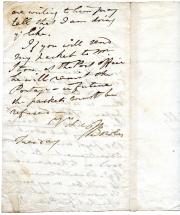 are writing to him may
tell that I am doing
y like.
If you will send
my packet to Mr
at the Post Office
he will remit the
Postage - in future
the packets must be
refused
Tuesday